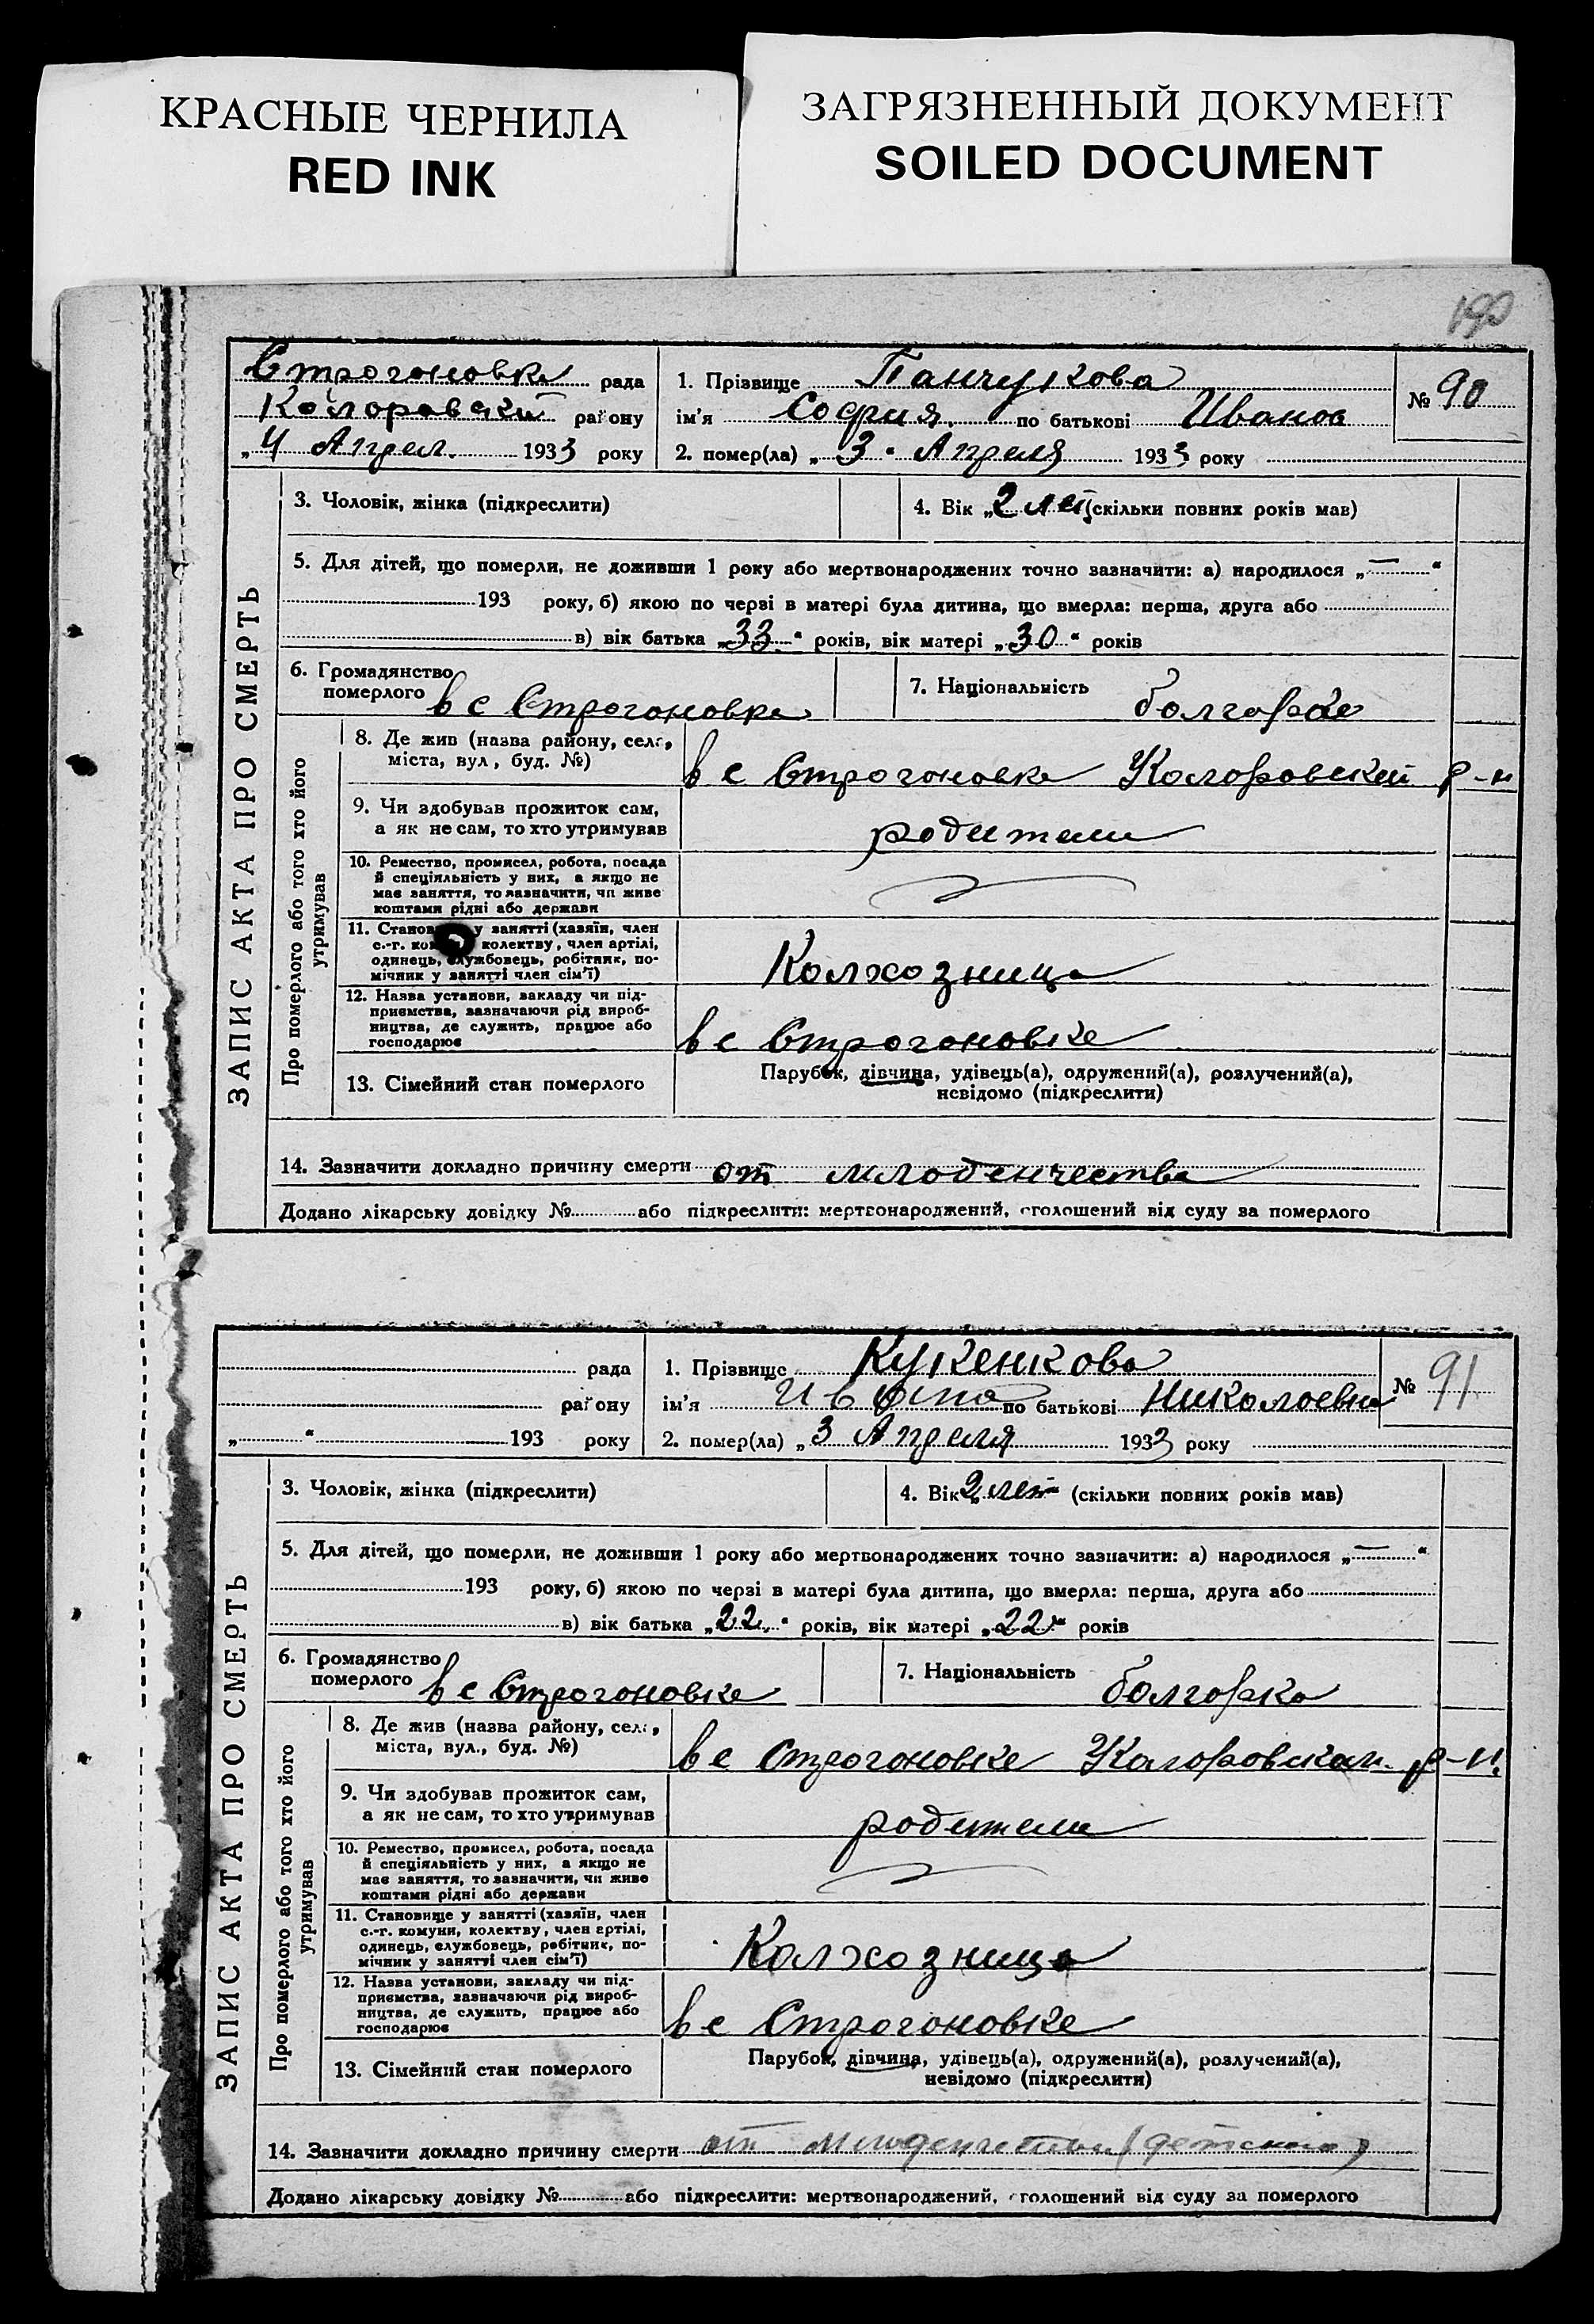 КРАСНЫЕ ЧЕРНИЛА
RED INK
ЗАГРЯЗНЕННЫЙ ДОКУМЕНТ
SOILED DOCUMENT
190
Строгоновка рада
Коларовский району
„4 Апрел. 1933 року
1. Прізвище Панчукова
ім'я София. по батькові Иванов
2. помер(ла) „ 3 " Апреля 1933 року
№ 90
ЗАПИС АКТА ПРО СМЕРТЬ
3. Чоловік, жінка (підкреслити)
4. Вік „2 лет (скільки повних років мав)
5. Для дітей, що померли, не доживши 1 року або мертвонароджених точно зазначити: а) народилося „—“
193 року, б) якою по черзі в матері була дитина, що вмерла: перша, друга або
в) вік батька „33“ років, вік матері „30“ років
6. Громадянство
померлого в с Строгоновке
7. Національність болгарка
Про померлого або того хто його
утримував
8. Де жив (назва району, села,
міста, вул, буд. №)
в с Строгоновке Коларовский р-н
9. Чи здобував прожиток сам,
а як не сам, то хто утримував
родители
10. Ремество, промисел, робота, посада
й спеціяльність у них, а якщо не
має заняття, то зазначити, чи живе
коштами рідні або держави
11. Станов у занятті (хазяїн, член
с.-г. ком колектву, член артілі,
одинець, службовець, робітник, по-
мічник у занятті член сім'ї)
Колхозница
12. Назва установи, закладу чи під-
приємства, зазначаючи рід вироб-
ництва, де служить, працює або
господарює
в с Строгоновке
13. Сімейний стан померлого
Парубок, дівчина, удівець(а), одружений(а), розлучений(а),
невідомо (підкреслити)
14. Зазначити докладно причину смерти от млоденчества
Додано лікарську довідку № або підкреслити: мертвонароджений, оголошений від суду за померлого
рада
району
„ “ 193 року
1. Прізвище Кукенкова
ім'я по батькові Николоевна
2. помер(ла) „3 Апреля 1933 року
№ 91
ЗАПИС АКТА ПРО СМЕРТЬ
3. Чоловік, жінка (підкреслити)
4. Вік „2 лет (скільки повних років мав)
5. Для дітей, що померли, не доживши 1 року або мертвонароджених точно зазначити: а) народилося „—“
193 року, б) якою по черзі в матері була дитина, що вмерла: перша, друга або
в) вік батька „22“ років, вік матері „22“ років
6. Громадянство
померлого в с Строгоновке
7. Національність болгарка
Про померлого або того хто його
утримував
8. Де жив (назва району, села,
міста, вул., буд. №)
в с Строгоновке р-н.
9. Чи здобував прожиток сам,
а як не сам, то хто утримував
родители
10. Ремество, промисел, робота, посада
й спеціяльність у них, а якщо не
має заняття, то зазначити, чи живе
коштами рідні або держави
11. Становище у занятті (хазяїн, член
с.-г. комуни, колектву, член артілі,
одинець, службовець, робітник, по-
мічник у занятті член сім'ї)
Колхозница
12. Назва установи, закладу чи під-
приємства, зазначаючи рід вироб-
ництва, де служить, працює або
господарює
в с Строгоновке
13. Сімейний стан померлого
Парубок, дівчина, удівець(а), одружений(а), розлучений(а),
невідомо (підкреслити)
14. Зазначити докладно причину смерти от млоденчества (детского)
Додано лікарську довідку № або підкреслити: мертвонароджений, оголошений від суду за померлого